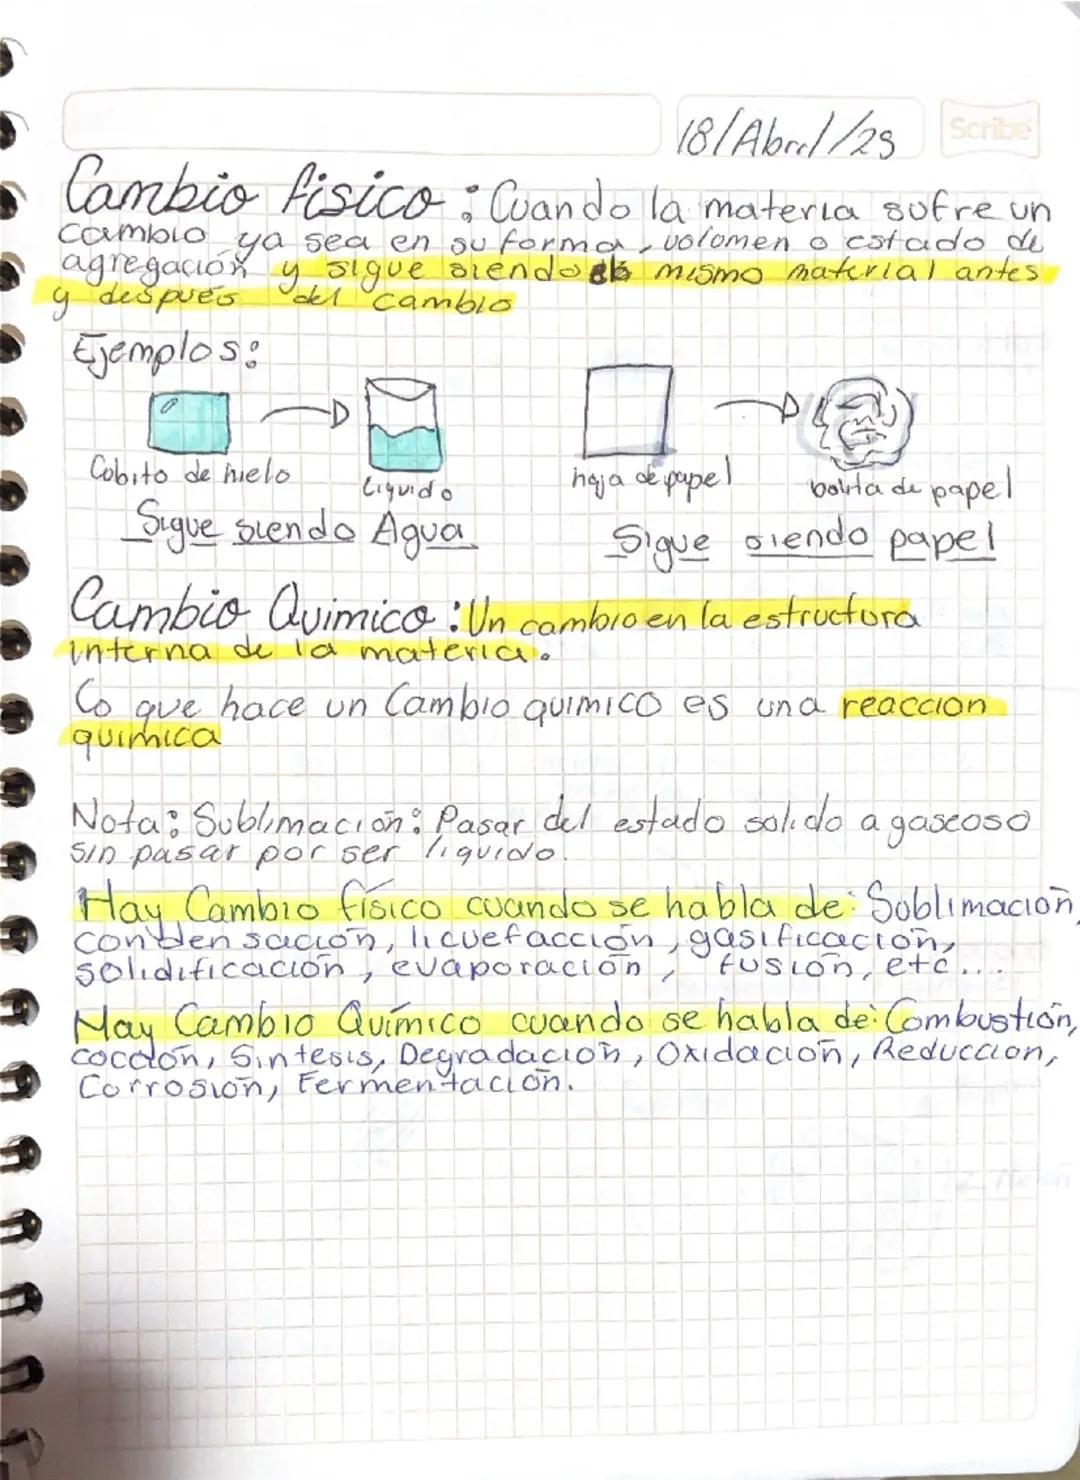 18/Abril/25
Scribe
Cambio físico: Cuando la materia sufre un
cambio ya sea en su forma, volumen o estado de
agregación y sigue siendo el mismo material antes
y después del cambio
Ejemplos:
Cubito de hielo
Líquido
hoja de papel
bolita de papel
Sigue siendo Agua
Sigue siendo papel
Cambio Quimico: Un cambio en la estructura
interna de la materia.
Lo que hace un Cambio quimico es una reaccion
quimica
Nota: Sublimación: Pasar del estado solido a gaseoso
sin pasar por ser liquido.
Hay Cambio físico cuando se habla de: Sublimación,
condensación, licuefacción, gasificación,
solidificación, evaporación, fusión, etc...
Hay Cambio Químico cuando se habla de: Combustión,
cocción, Sintesis, Degradación, Oxidación, Reduccion,
Corrosión, Fermentación.